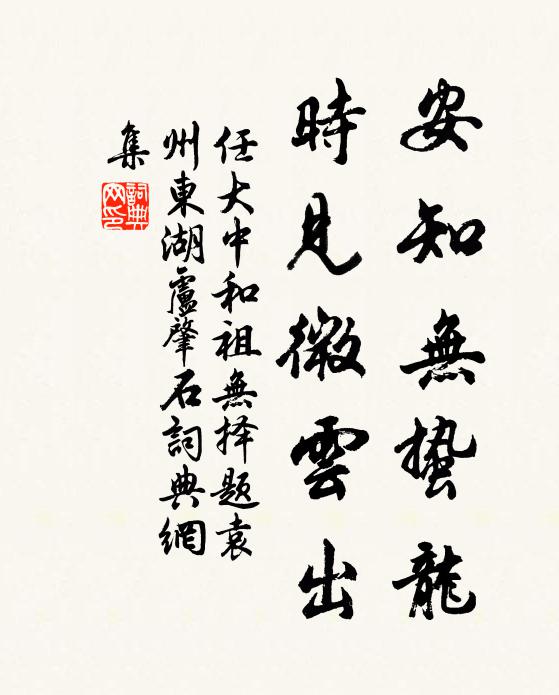 安知無蟄龍
時見微雲出
任大中和祖無择題袁
州東湖盧肇石詞典網
集
詞典
网印